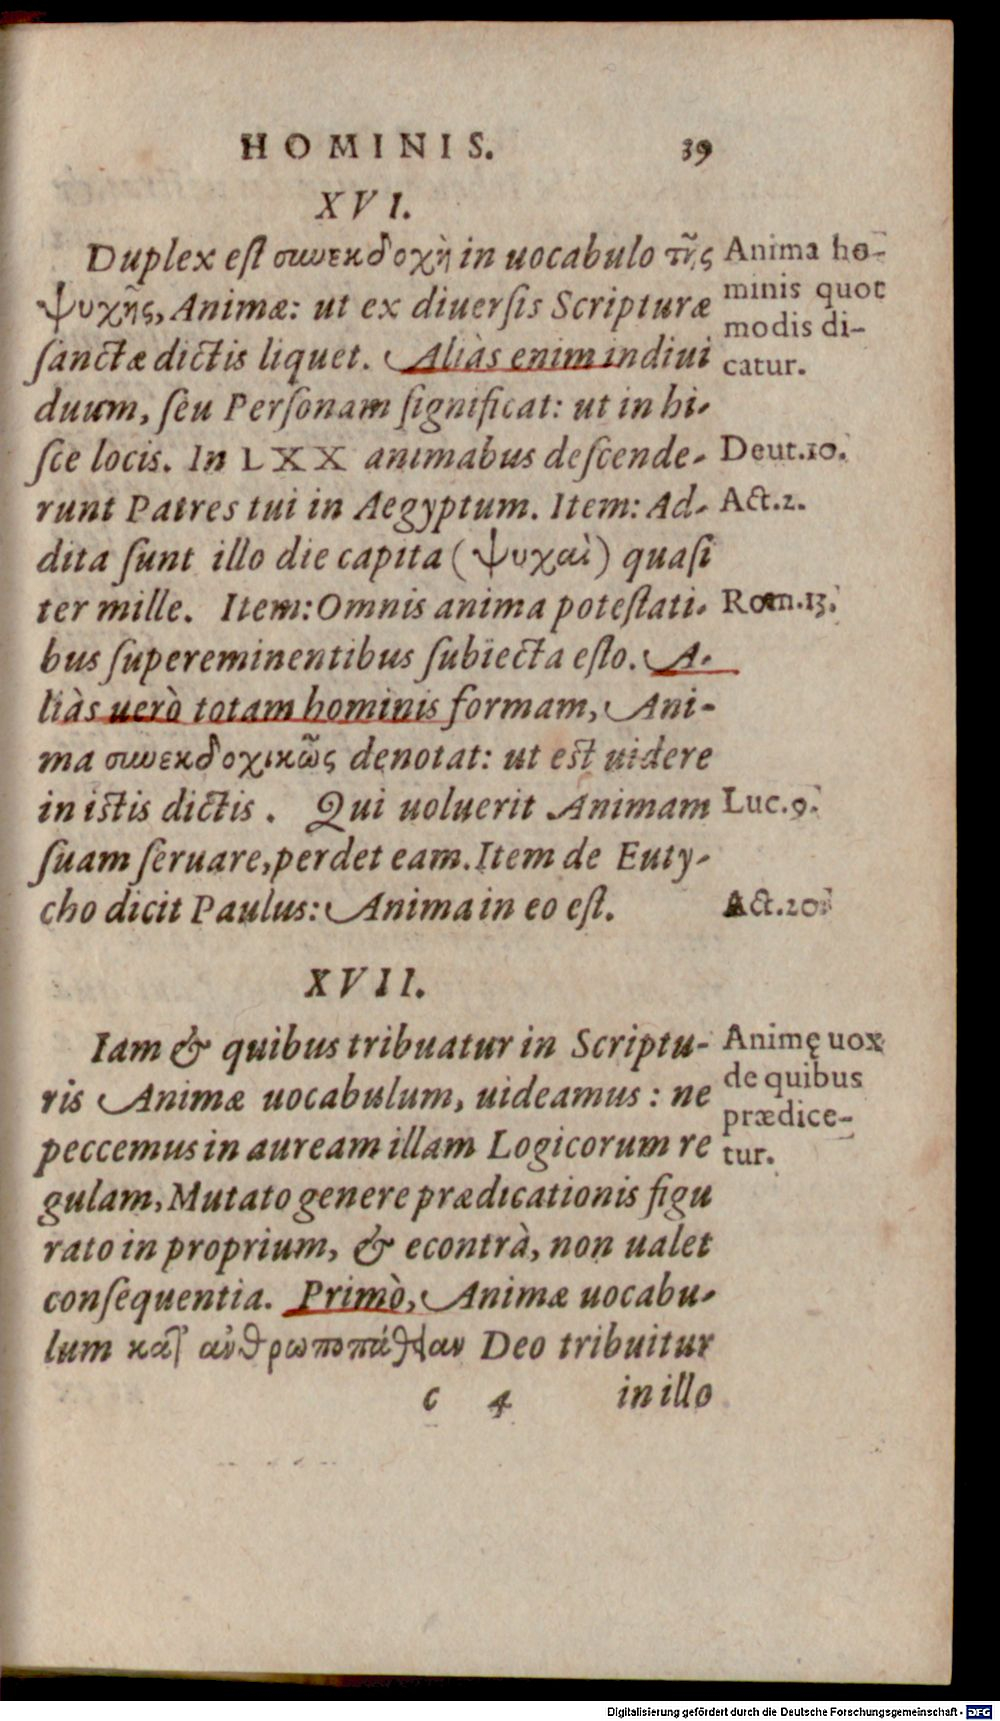 HOMINIS. 39
XVI.
Duplex eſt συνεκδοχὴ in uocabulo τῆς
ψυχῆς, Animæ: ut ex diuerſis Scripturæ
ſanctæ dictis liquet. Aliàs enim indiui
duum, ſeu Perſonam ſignificat: ut in hi-
ſce locis. In LXX animabus deſcende-
runt Patres tui in Aegyptum. Item: Ad-
dita ſunt illo die capita (ψυχαὶ) quaſi
ter mille. Item: Omnis anima poteſtati-
bus ſupereminentibus ſubiecta eſto. A-
liàs uerò totam hominis formam, Ani-
ma συνεκδοχικῶς denotat: ut est uidere
in istis dictis. Qui uoluerit Animam
ſuam ſeruare, perdet eam. Item de Euty-
cho dicit Paulus: Anima in eo eſt.
Anima ho-
minis quot
modis di-
catur.
Deut.10.
Act.2.
Rom.13.
Luc.9.
Act.20.
XVII.
Iam & quibus tribuatur in Scriptu-
ris Animæ uocabulum, uideamus: ne
peccemus in auream illam Logicorum re
gulam, Mutato genere prædicationis figu
rato in proprium, & econtrà, non ualet
conſequentia. Primò, Animæ uocabu-
lum κατ᾽ ἀνθρωποπάθειαν Deo tribuitur
Animę uox
de quibus
prædice-
tur.
c 4 in illo
Digitalisierung gefördert durch die Deutsche Forschungsgemeinschaft - DFG